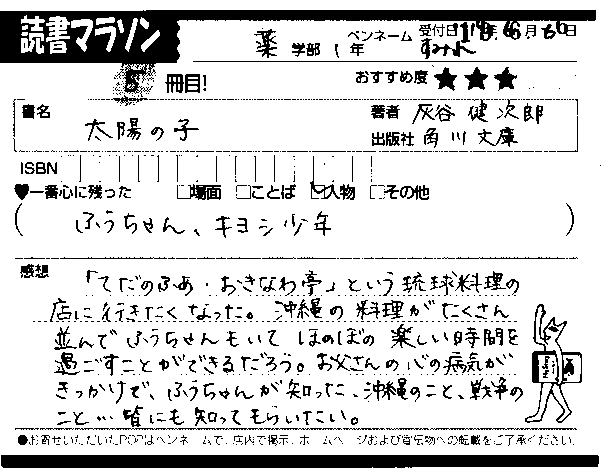 読書マラソン
薬 学部 1 年 ペンネーム すみれ 受付日 年 月 日
5 冊目! おすすめ度 ★★★
書名 太陽の子
著者 灰谷健次郎
出版社 角川文庫
ISBN
♥一番心に残った □場面 □ことば ☑人物 □その他
(ふうちゃん、キヨシ少年)
感想
「てだのふあ・おきなわ亭」という琉球料理の
店に行きたくなった。沖縄の料理がたくさん
並んでふうちゃんもいてほのぼの楽しい時間を
過ごすことができるだろう。お父さんの心の病気が
きっかけで、ふうちゃんが知った、沖縄のこと、戦争の
こと…皆にも知ってもらいたい。
●お寄せいただいたPOPはペンネームで、店内で掲示、ホームページおよび宣伝物への転載をご了承ください。